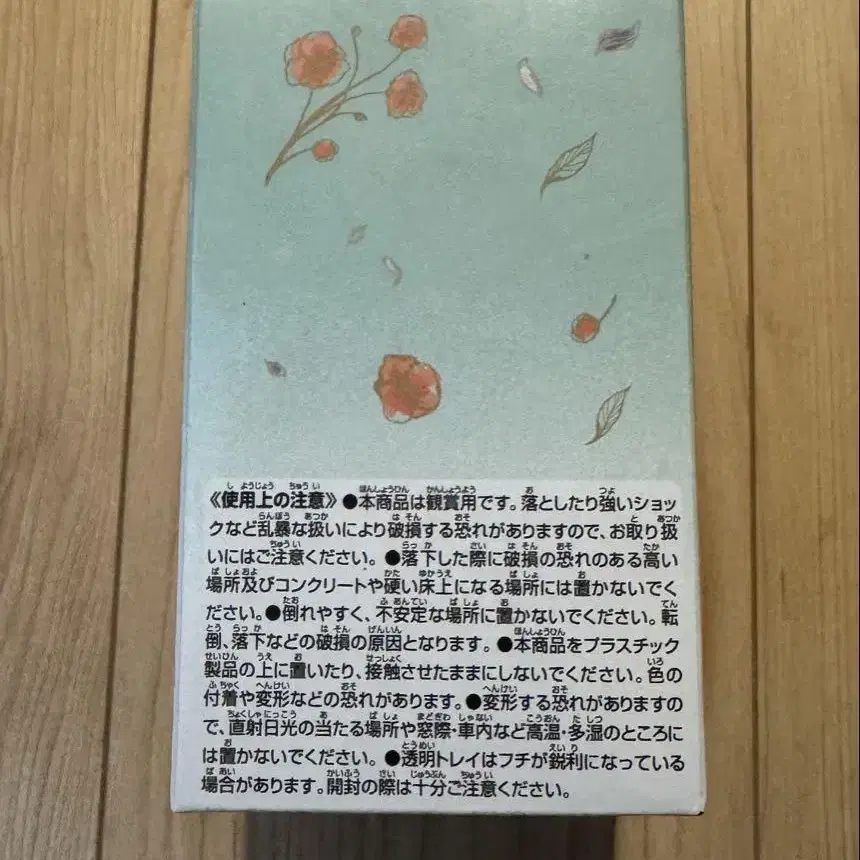 《使用上の注意》●本商品は観賞用です。落としたり強いショッ
クなど乱暴な扱いにより破損する恐れがありますので、お取り扱
いにはご注意ください。●落下した際に破損の恐れのある高い
場所及びコンクリートや硬い床上になる場所には置かないでくだ
さい。●倒れやすく、不安定な場所に置かないでください。転
倒、落下などの破損の原因となります。●本商品をプラスチック
製品の上に置いたり、接触させたままにしないでください。色の
付着や変形などの恐れがあります。●変形する恐れがありますの
で、直射日光の当たる場所や窓際・車内など高温・多湿のところに
は置かないでください。●透明トレイはフチが鋭利になっている
場合があります。開封の際は十分ご注意ください。